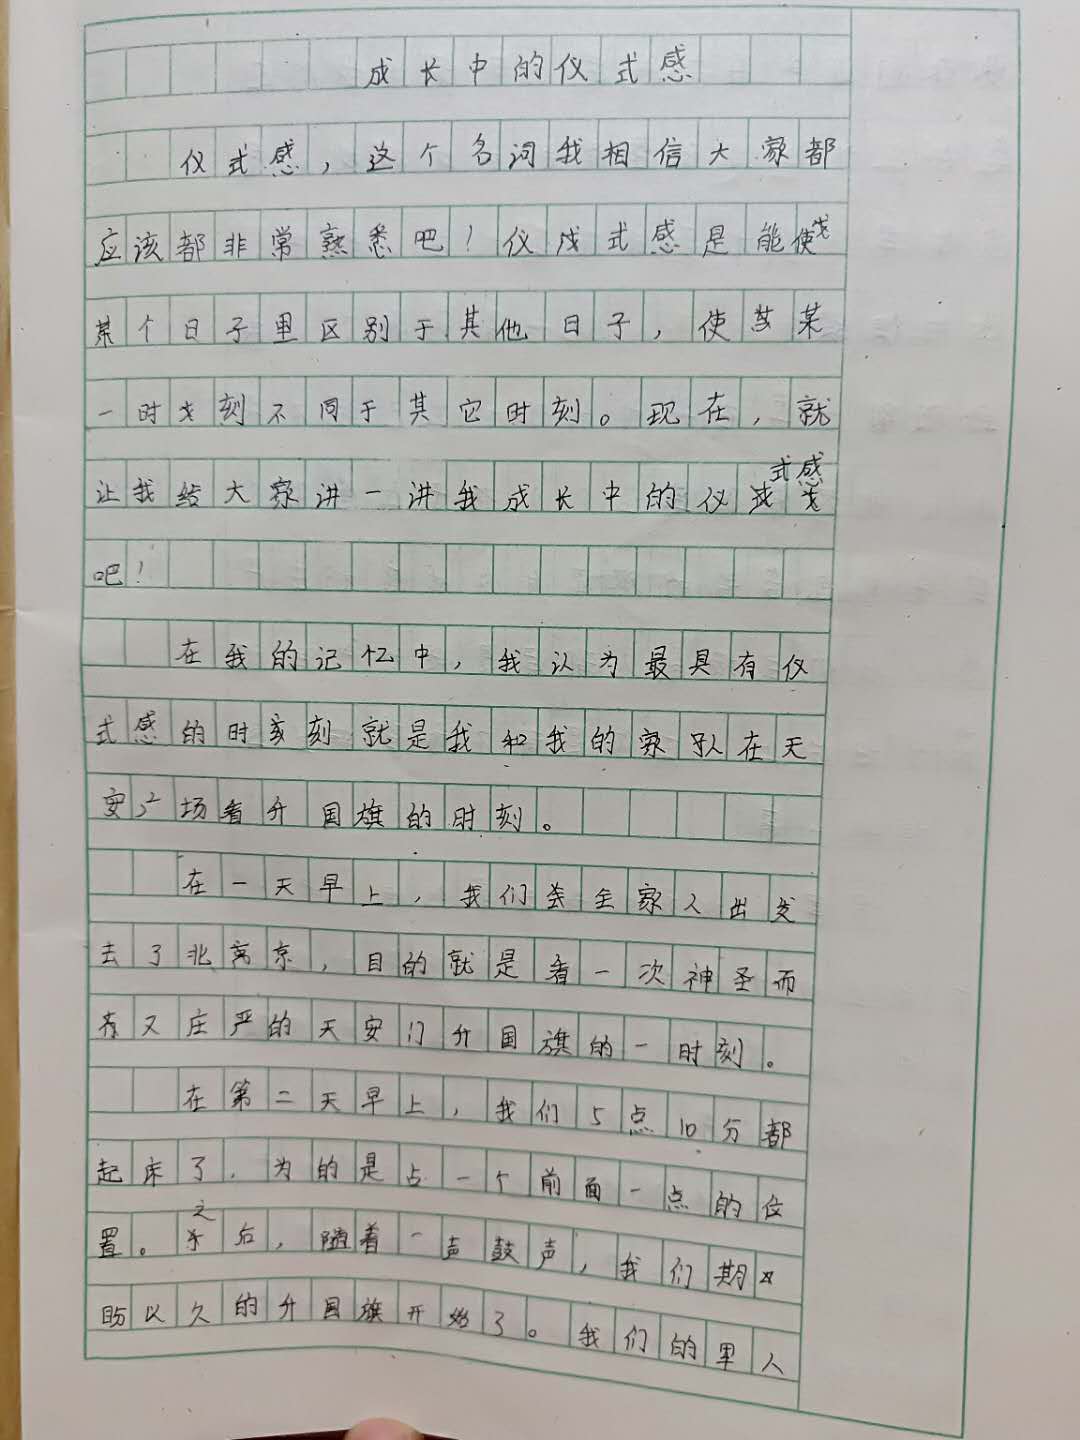 成长中的仪式感
仪式感，这个名词我相信大家都
应该都非常熟悉吧！仪式感是能使
某个日子里区别于其他日子，使某
一时刻不同于其它时刻。现在，就
让我给大家讲一讲我成长中的仪式感
吧！
在我的记忆中，我认为最具有仪
式感的时刻就是我和我的家人在天
安广场看升国旗的时刻。
在一天早上，我们全家人出发
去了北京，目的就是看一次神圣而
又庄严的天安门升国旗的一时刻。
在第二天早上，我们5点10分都
起床了，为的是占一个前面一点的位
置。之后，随着一声鼓声，我们期
盼以久的升国旗开始了。我们的军人